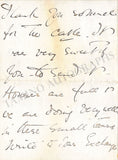 Thank you so much
for the cable. It
was very sweet of
you to send it.
Houses are full &
we are doing very well
in these small towns
Write to